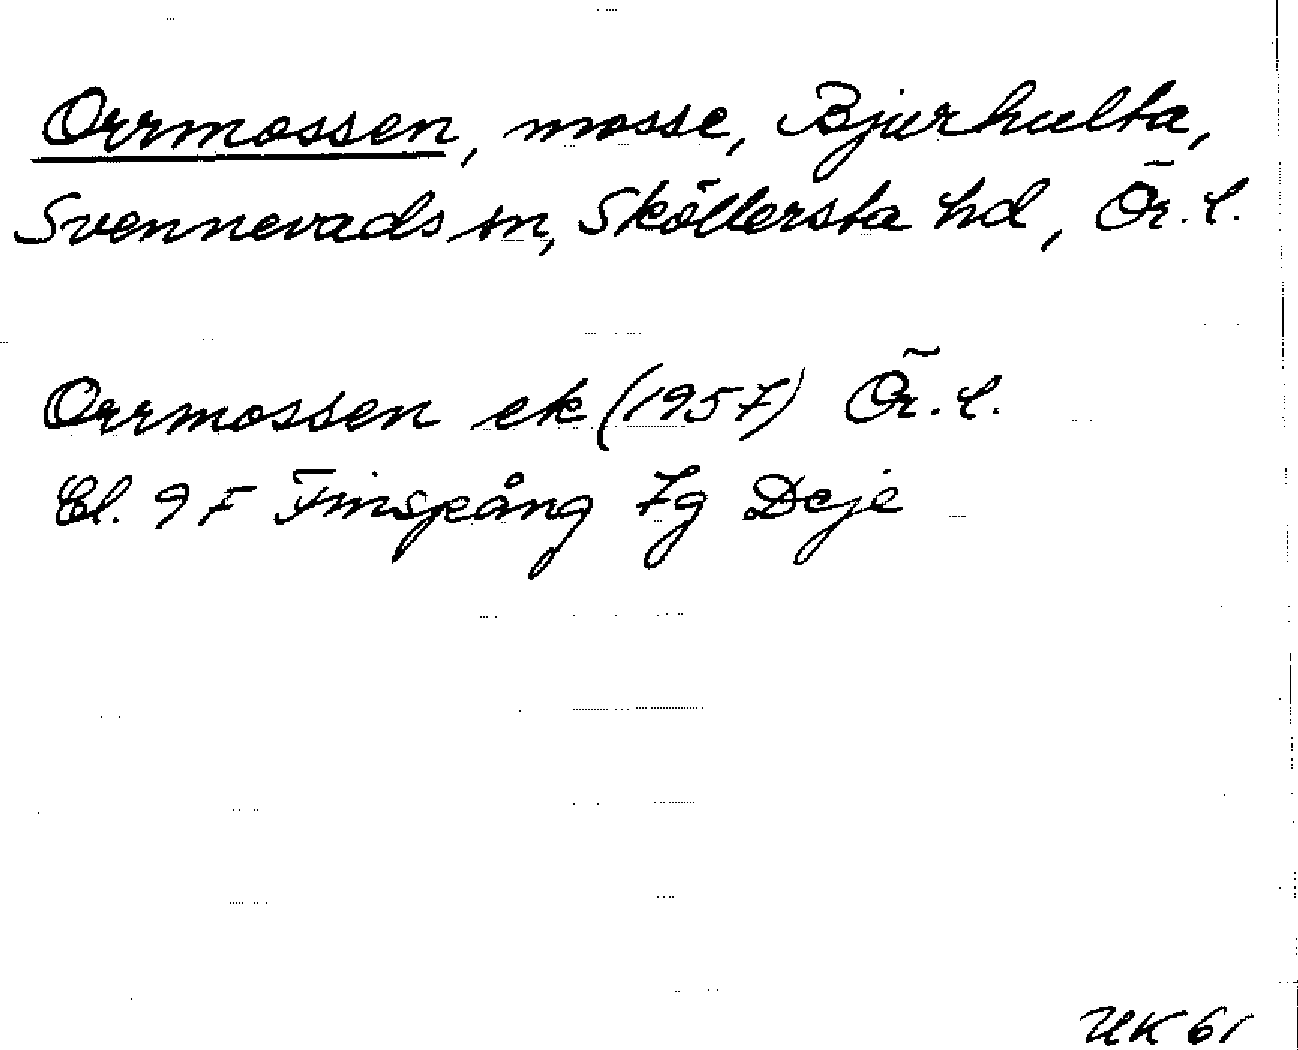 Orrmossen, mosse, Bjurhulta,
Svennevads sn, Sköllersta hd, Ör. l.
Orrmossen ek (1957) Ör. l.
Bl. 9 F Finspång 7g Deje
UK 61